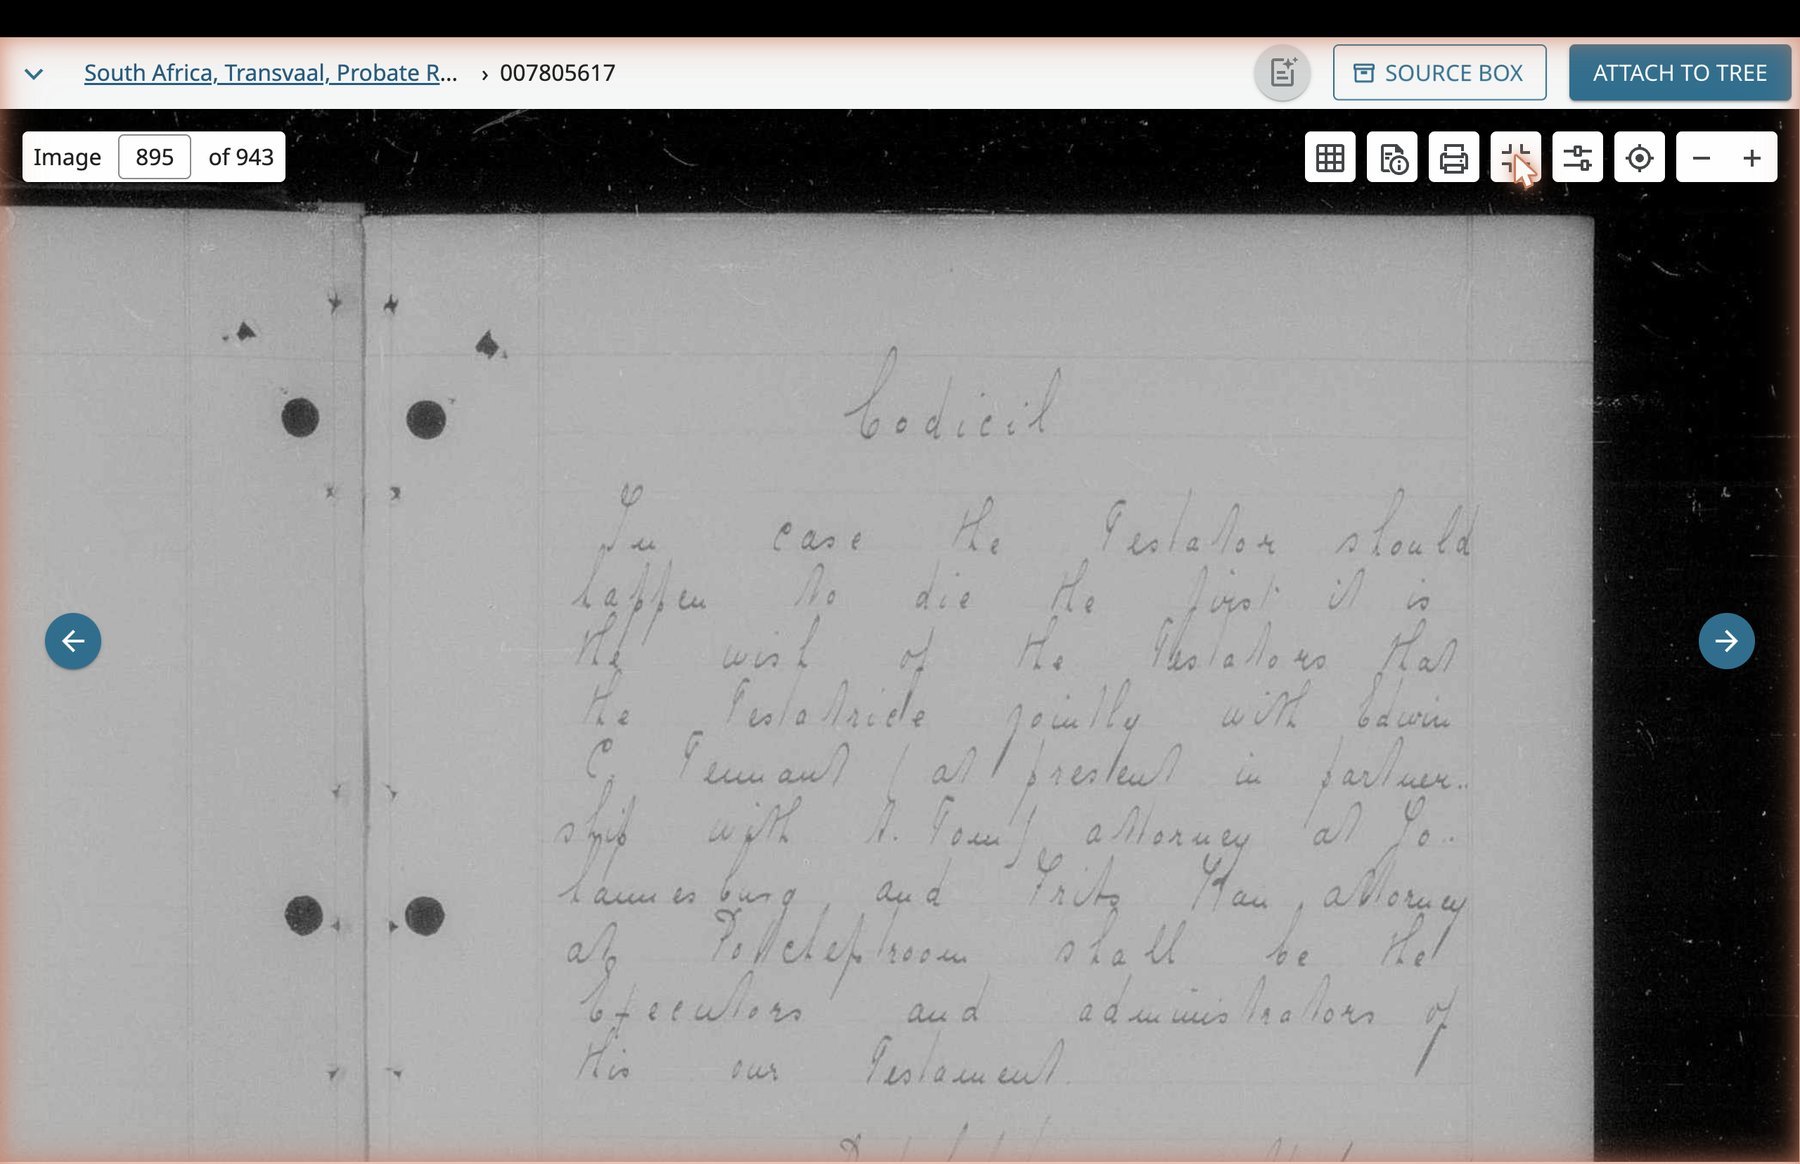 South Africa, Transvaal, Probate R... › 007805617
SOURCE BOX
ATTACH TO TREE
Image 895 of 943
Codicil
In case the Testator should
happen to die the first it is
the wish of the Testators that
the Testatrice jointly with Edwin
C. Tennant (at present in partner-
ship with A. Tom) attorney at Jo-
hannesburg and Frits attorney
at Potchefstroom shall be the
Executors and administrators of
this our Testament.